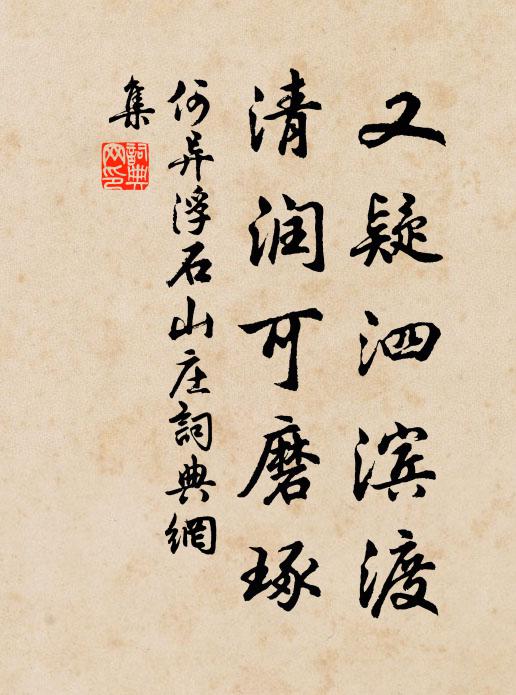 又疑泗滨渡
清润可磨琢
何异浮石山庄詞典網
集
詞典
网印